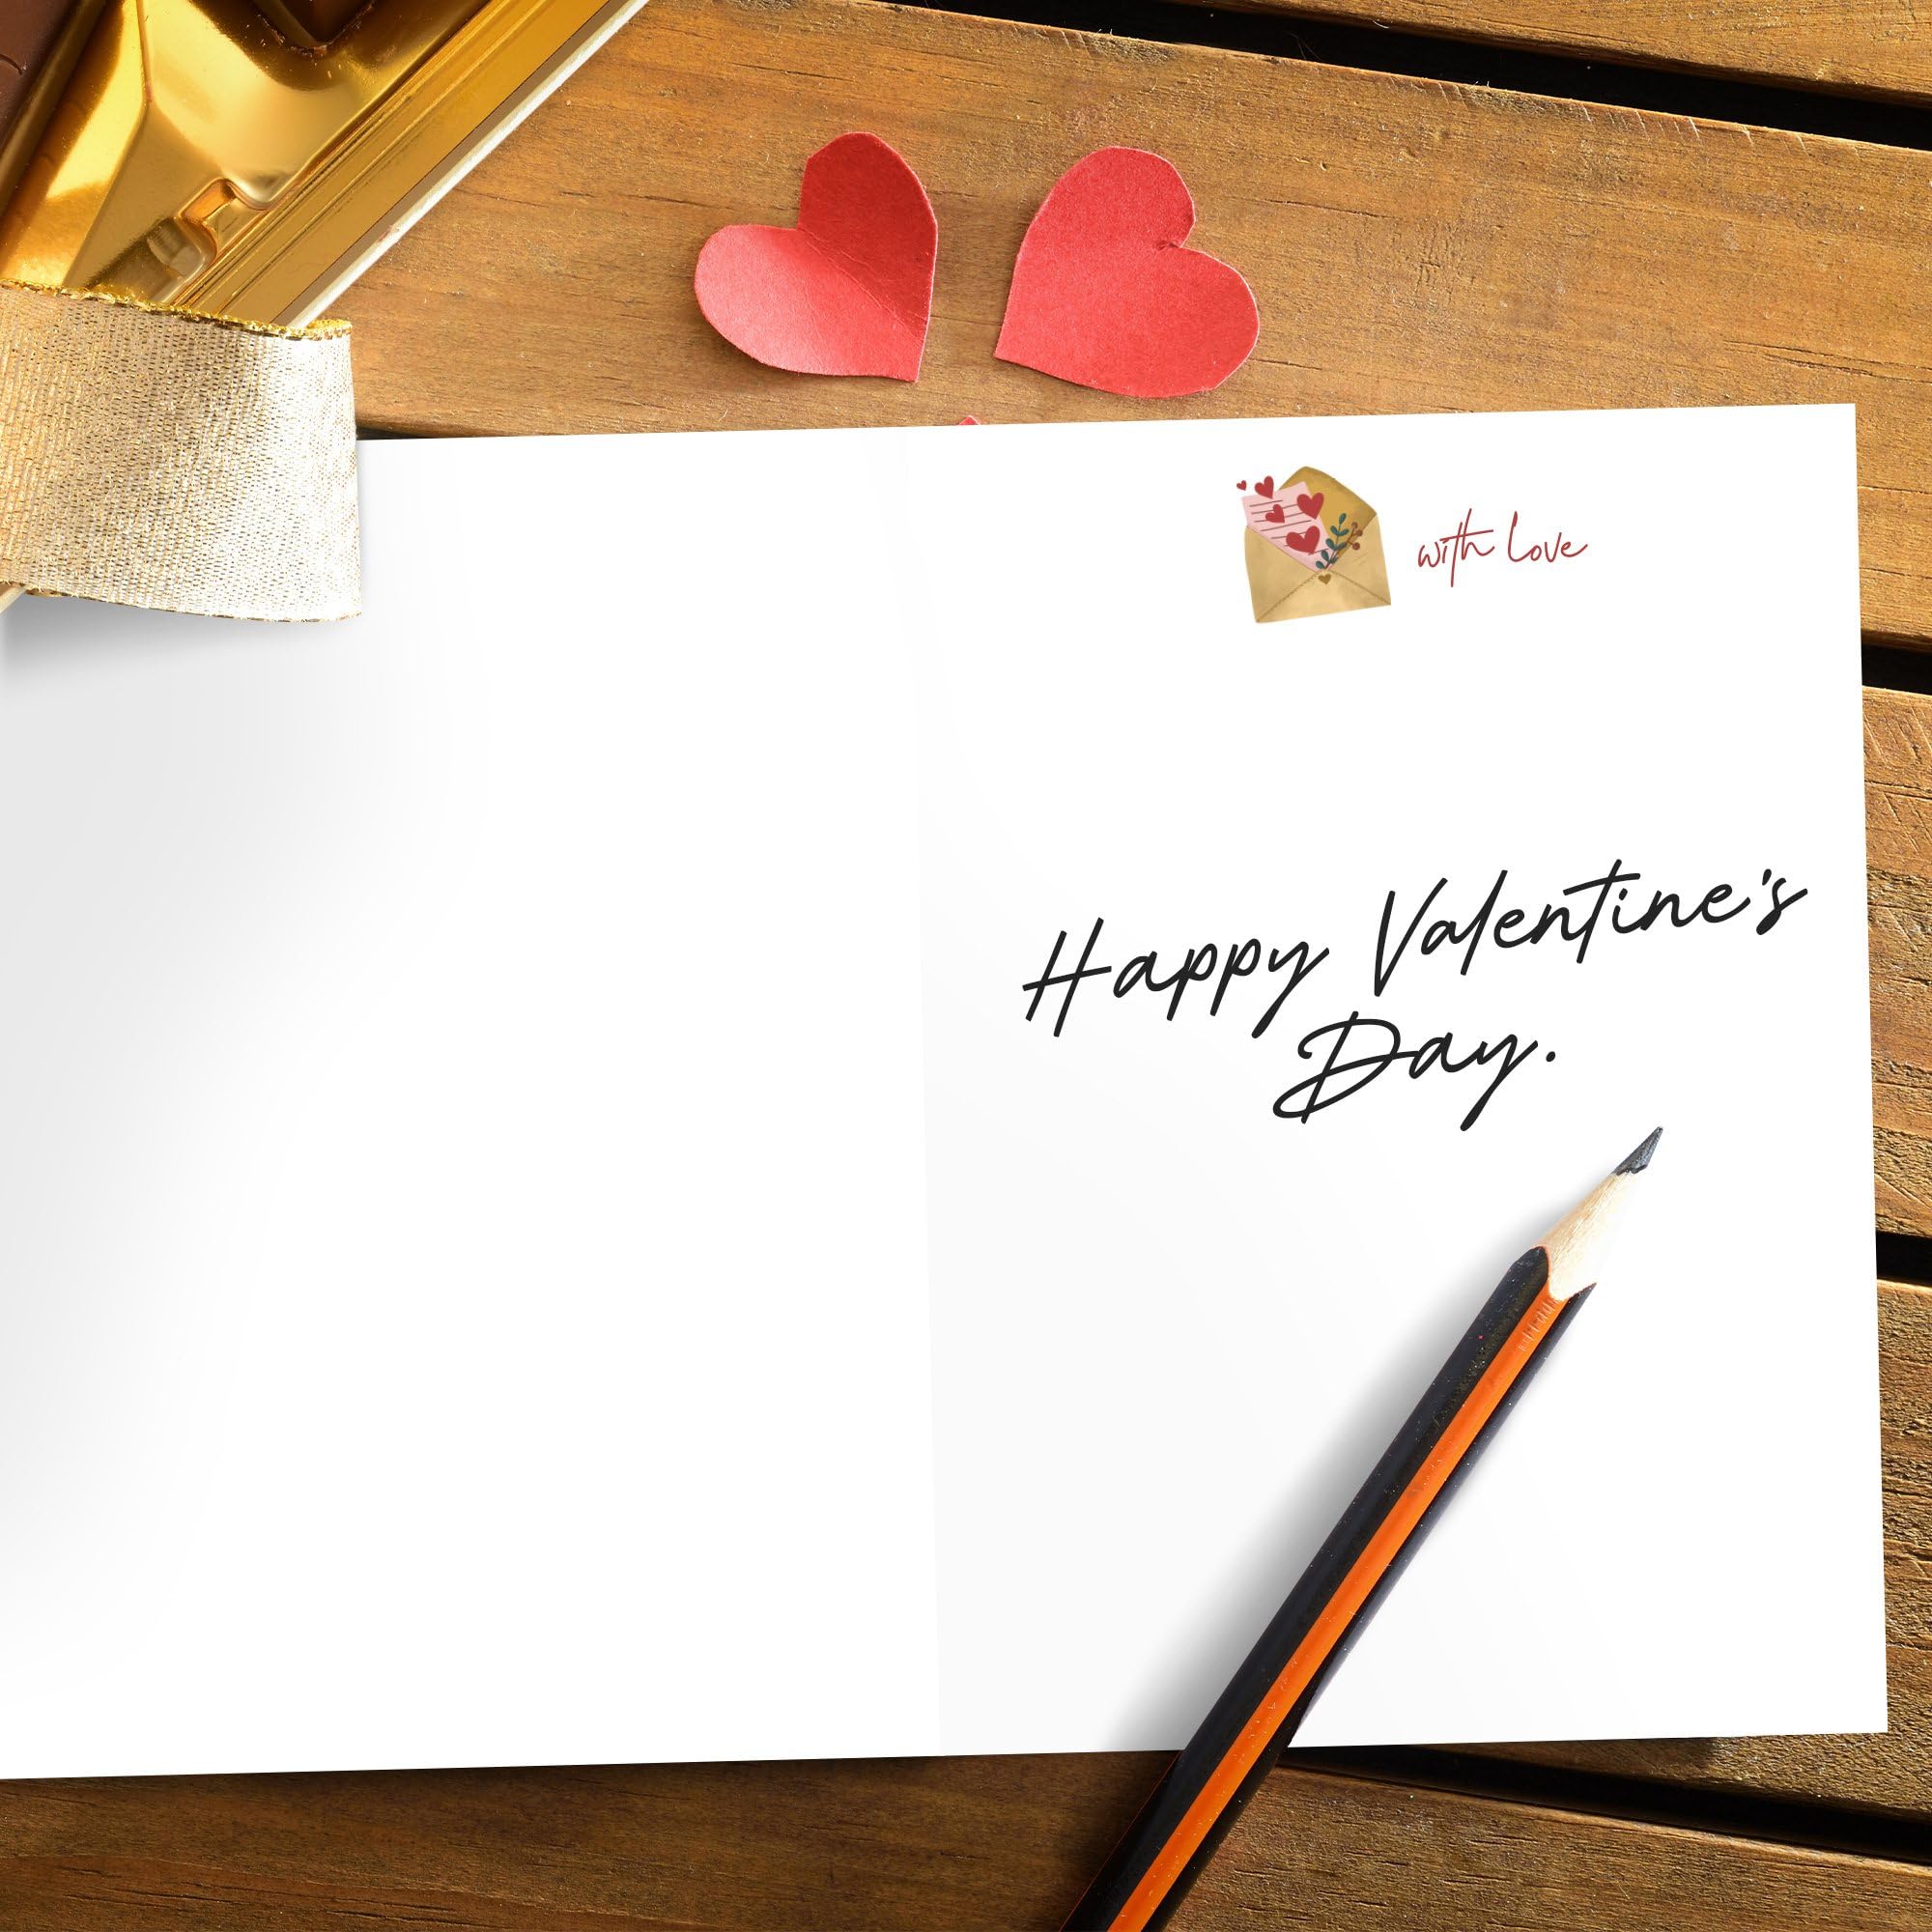 with Love
Happy Valentine's
Day.